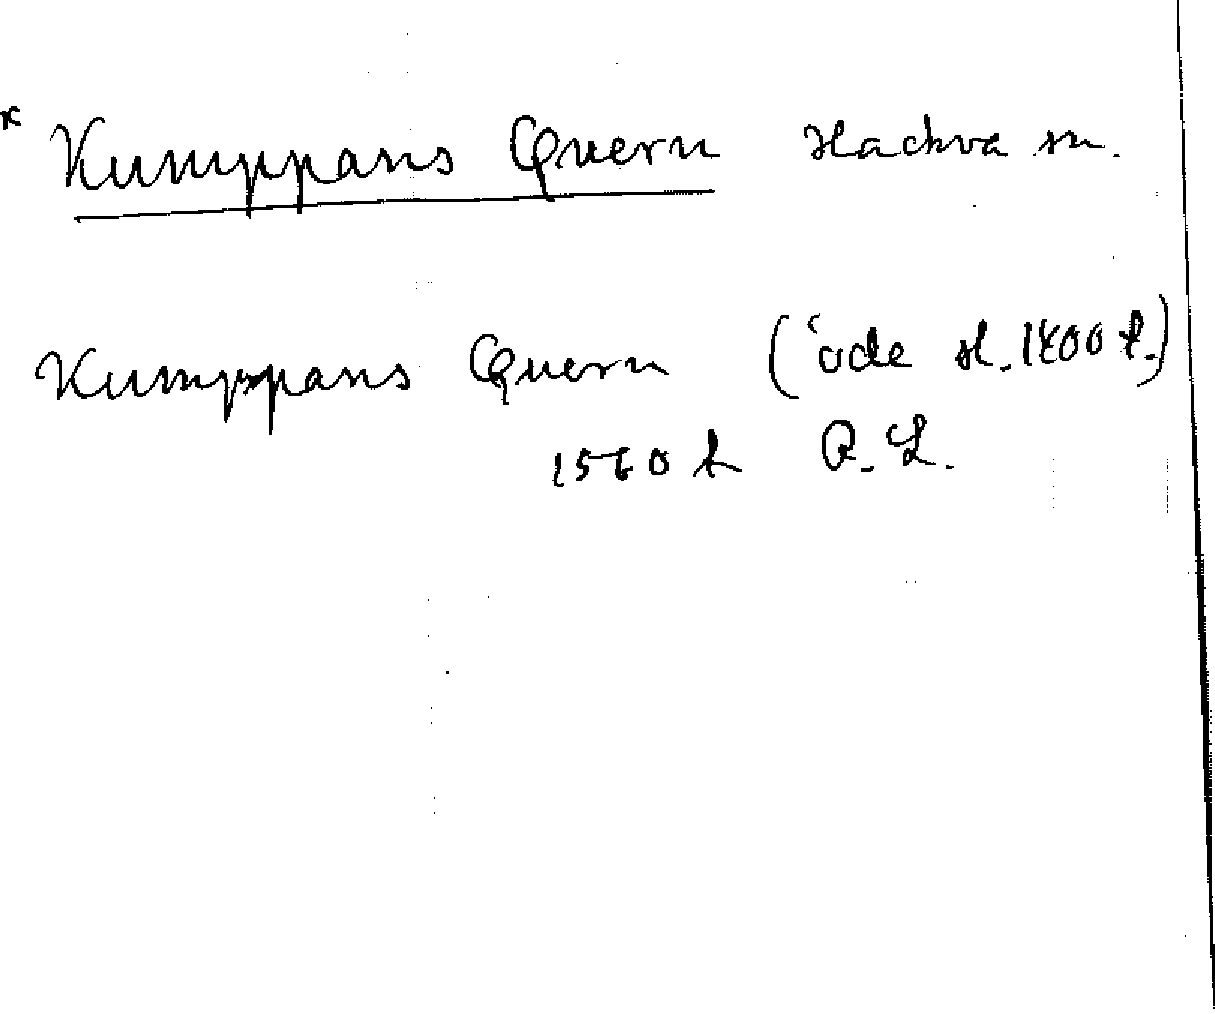 * Kumppans Quern Hackva sn.
Kumppans Quern (öde sl. 1400 t.)
1560 h R. L.